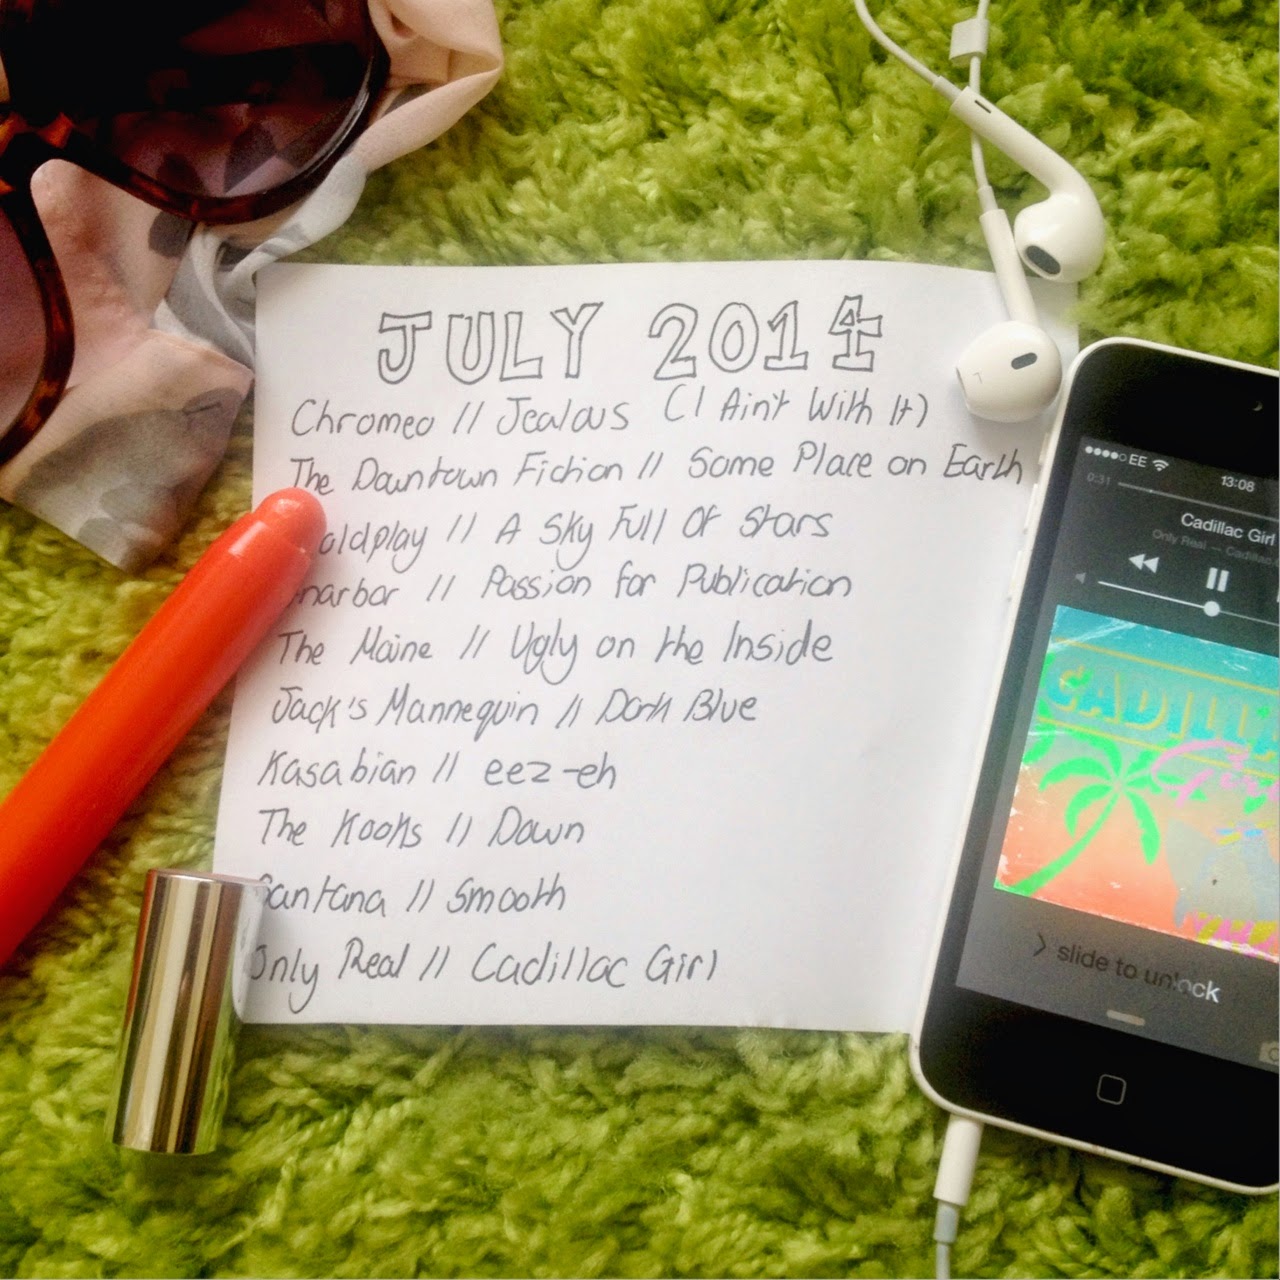 JULY 2014
Chromeo // Jealous (I Ain't With It)
The Downtown Fiction // Some Place on Earth
oldplay // A Sky Full Of Stars
narbar // Passion for Publication
The Maine // Ugly on the Inside
Jack's Mannequin // Dark Blue
Kasabian // eez-eh
The Kooks // Down
Santana // Smooth
Only Real // Cadillac Girl
EE 13:08
0:31
Cadillac Girl
Only Real — Cadillac
CADILLA
Girl
slide to unlock